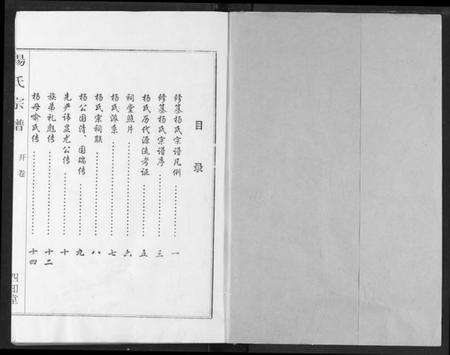 目录
修纂杨氏宗谱凡例 一
修纂杨氏宗谱序 三
杨氏历代源流考证 五
祠堂照片 六
杨氏派系 七
杨氏宗祠联 八
杨公国清、国瑞传 九
先严讳显尤公传 十
族弟礼彪传 十二
杨母喻氏传 十四
楊氏宗譜
开卷
四知堂